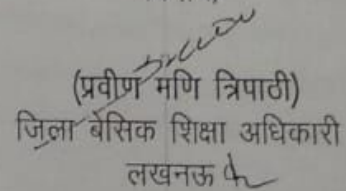 (प्रवीण मणि त्रिपाठी)
जिला बेसिक शिक्षा अधिकारी
लखनऊ